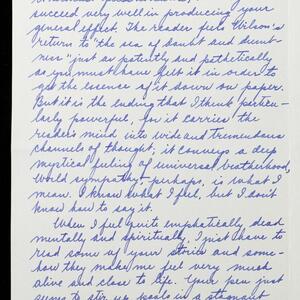 succeed very well in producing your
general effect. The reader feels Wilson's
return to "the sea of doubt and
just as potently and pathetically
as you must have felt it in order to
get the essence of it down on paper.
But it is the ending that I think particu-
larly powerful, for it carries the
reader's mind into wide and tremendous
channels of thought; it conveys a deep
mystical feeling of universal brotherhood,
World sympathy perhaps, is what I
mean. I know what I feel, but I don't
know how to say it.
When I feel quite emphatically dead
mentally and spiritually, I just have to
read some of your stories and some-
how they make me feel very much
alive and close to life. Your pen just
seems to stir up pools in a stagnant